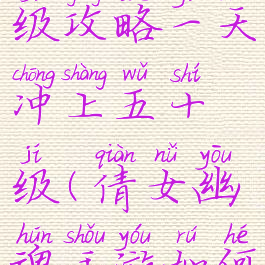 级攻略一天
chōng shàng wǔ shí
冲上五十
jí qiàn nǚ yōu
级(倩女幽
hún shǒu yóu rú hé
魂手游如何